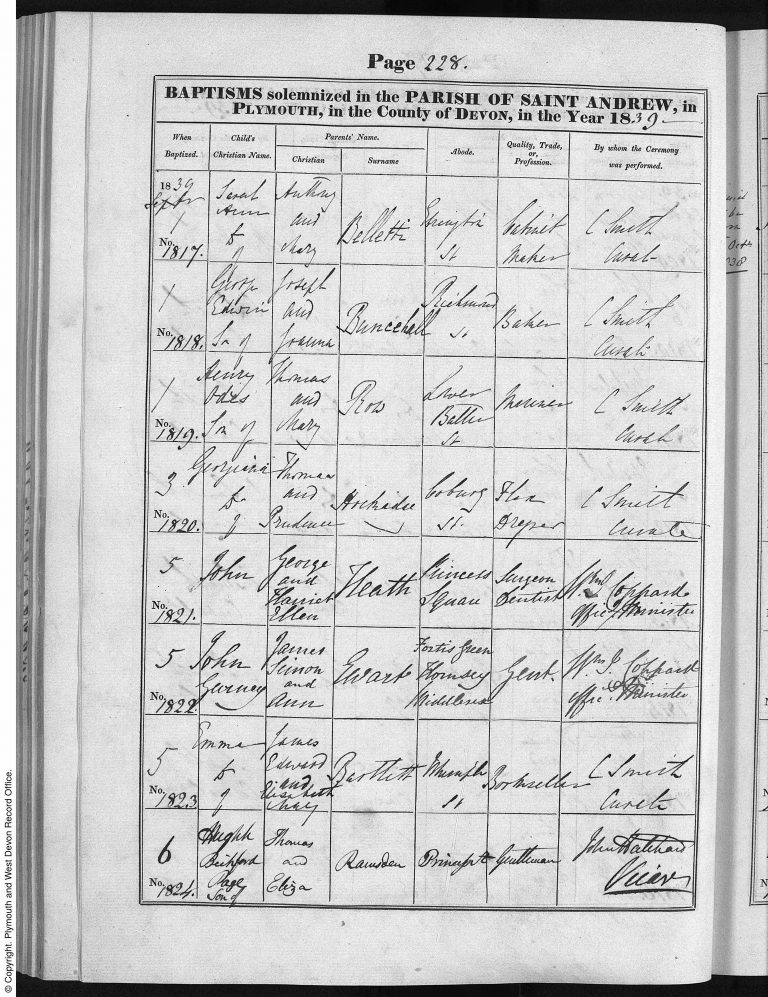 Page 228.
BAPTISMS solemnized in the PARISH OF SAINT ANDREW, in
PLYMOUTH, in the County of DEVON, in the Year 1839
When Baptized.
Child's Christian Name.
Parents' Name.
Christian
Surname
Abode.
Quality, Trade, or, Profession.
By whom the Ceremony was performed.
1839
Septbr
1
No. 1817.
Sarah
Ann
D
of
Anthony
and
Mary
Belletti
St
Cabinet
Maker
C Smith
Curate
1
No. 1818.
George
Edwin
Son of
Joseph
and
Joanna
Buncehall
Richmond
St
Baker
C Smith
Curate
1
No. 1819.
Henry
Son of
Thomas
and
Mary
Ross
Lower
Batter
St
Mariner
C Smith
Curate
3
No. 1820.
Georgiana
D
of
Thomas
and
Prudence
Hockadee
Coburg
St.
Draper
C Smith
Curate
5
No. 1821.
John
George
and
Harriet
Ellen
Heath
Princess
Square
Surgeon
Dentist
Wm J. Coppard
Offic. Minister
5
No. 1822
John
Gurney
James
Simon
and
Ann
Ewart
Fortis Green
Hornsey
Middlesex
Gent.
Wm J. Coppard
Offic. Minister
5
No. 1823
Emma
D
of
James
Edward
and
Elizabeth
Mary
Bartlett
St
Bookseller
C Smith
Curate
6
No. 1824.
Hugh
Beckford
Page
Son of
Thomas
and
Eliza
Ramsden
Princess St
Gentleman
John Hatchard
Vicar
© Copyright. Plymouth and West Devon Record Office.